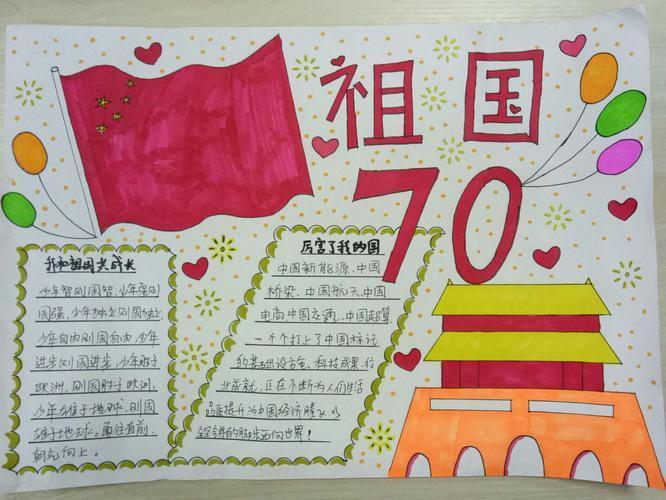 祖国
70
我和祖国共成长
少年智则国智,少年强则
国强,少年独立则国独立
少年自由则国自由,少年
进步则国进步,少年胜于
欧洲,则国胜于欧洲,
少年雄于地球,则国
雄于地球。勇往直前,
朝气向上。
厉害了我的国
中国新能源、中国
桥梁、中国航天、中国
电商中国交通、中国超算
一个个打上了中国标记
的基础设施、科技成果、行
业成就,正在不断为人们生活
品质提升为中国经济腾飞
的脚步迈向世界!